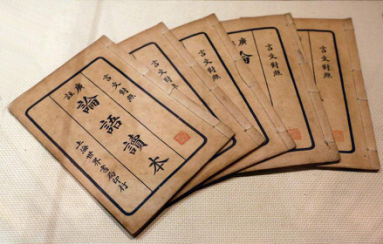 言文對照
廣註
論語讀本
上海世界書局印行
言文對照
言文對照
廣
言文對照
言文對照